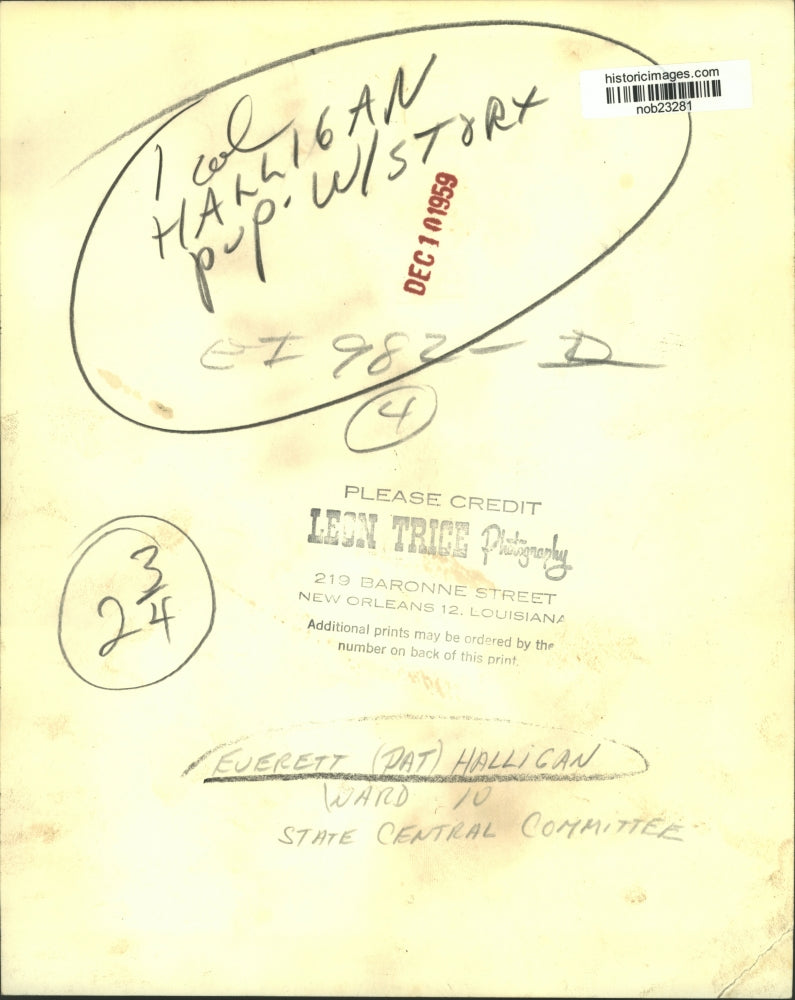 historicimages.com
nob23281
1 col
HALLIGAN
pup. W/STORY
DEC 10 1959
EI 982 - D
4
PLEASE CREDIT
LEON TRICE Photography
219 BARONNE STREET
NEW ORLEANS 12, LOUISIANA
Additional prints may be ordered by the
number on back of this print.
2 3/4
EVERETT (PAT) HALLIGAN
WARD 10
STATE CENTRAL COMMITTEE